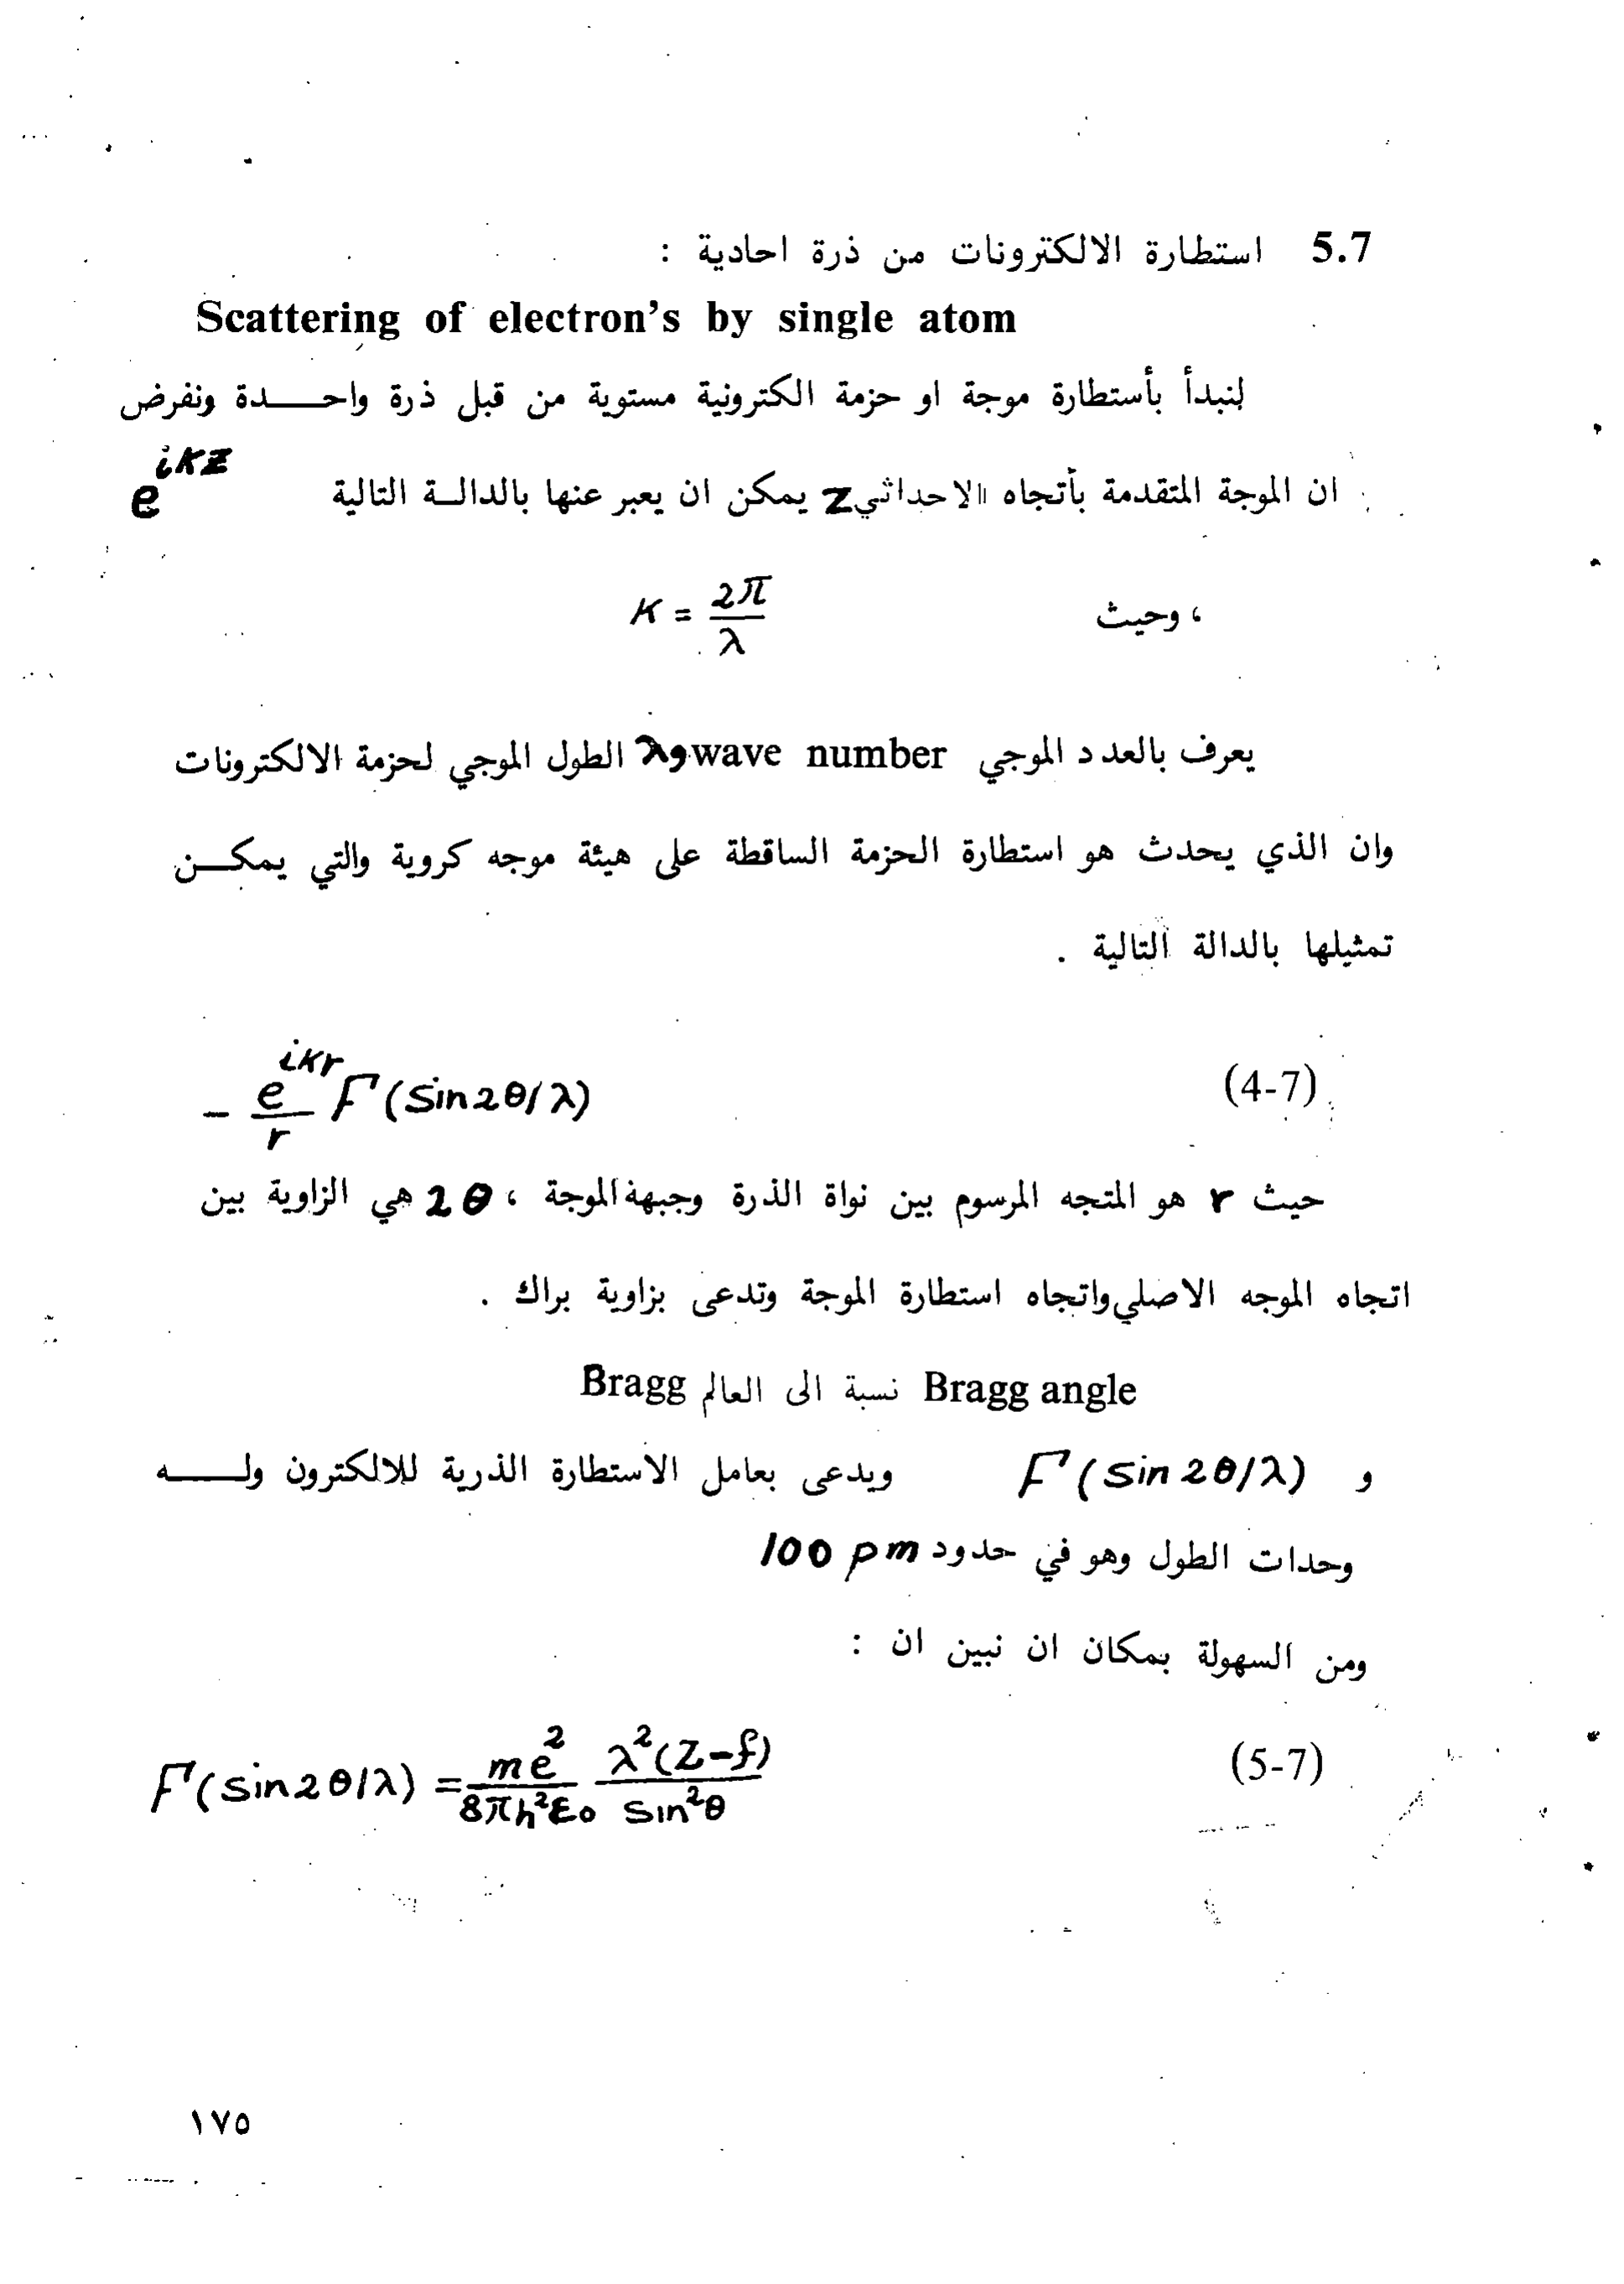 5.7 استطارة الالكترونات من ذرة احادية :
Scattering of electron's by single atom
لنبدأ بأستطارة موجة او حزمة الكترونية مستوية من قبل ذرة واحـــدة ونفرض
ان الموجة المتقدمة بأتجاه الاحداثي z يمكن ان يعبر عنها بالدالـة التالية e^{iKz}
، وحيث K = 2π/λ
يعرف بالعدد الموجي wave number و λ الطول الموجي لحزمة الالكترونات
وان الذي يحدث هو استطارة الحزمة الساقطة على هيئة موجه كروية والتي يمكــن
تمثيلها بالدالة التالية .
(4-7) - e^{iKr}/r F(Sin2θ/λ)
حيث r هو المتجه المرسوم بين نواة الذرة وجبهة الموجة ، 2θ هي الزاوية بين
اتجاه الموجه الاصلي واتجاه استطارة الموجة وتدعى بزاوية براك .
Bragg angle نسبة الى العالم Bragg
و F(Sin2θ/λ) ويدعى بعامل الاستطارة الذرية للالكترون ولـــه
وحدات الطول وهو في حدود 100 pm
ومن السهولة بمكان ان نبين ان :
(5-7) F(Sin2θ/λ) = me²/8πh²ε₀ λ²(Z-f)/Sin²θ
١٧٥